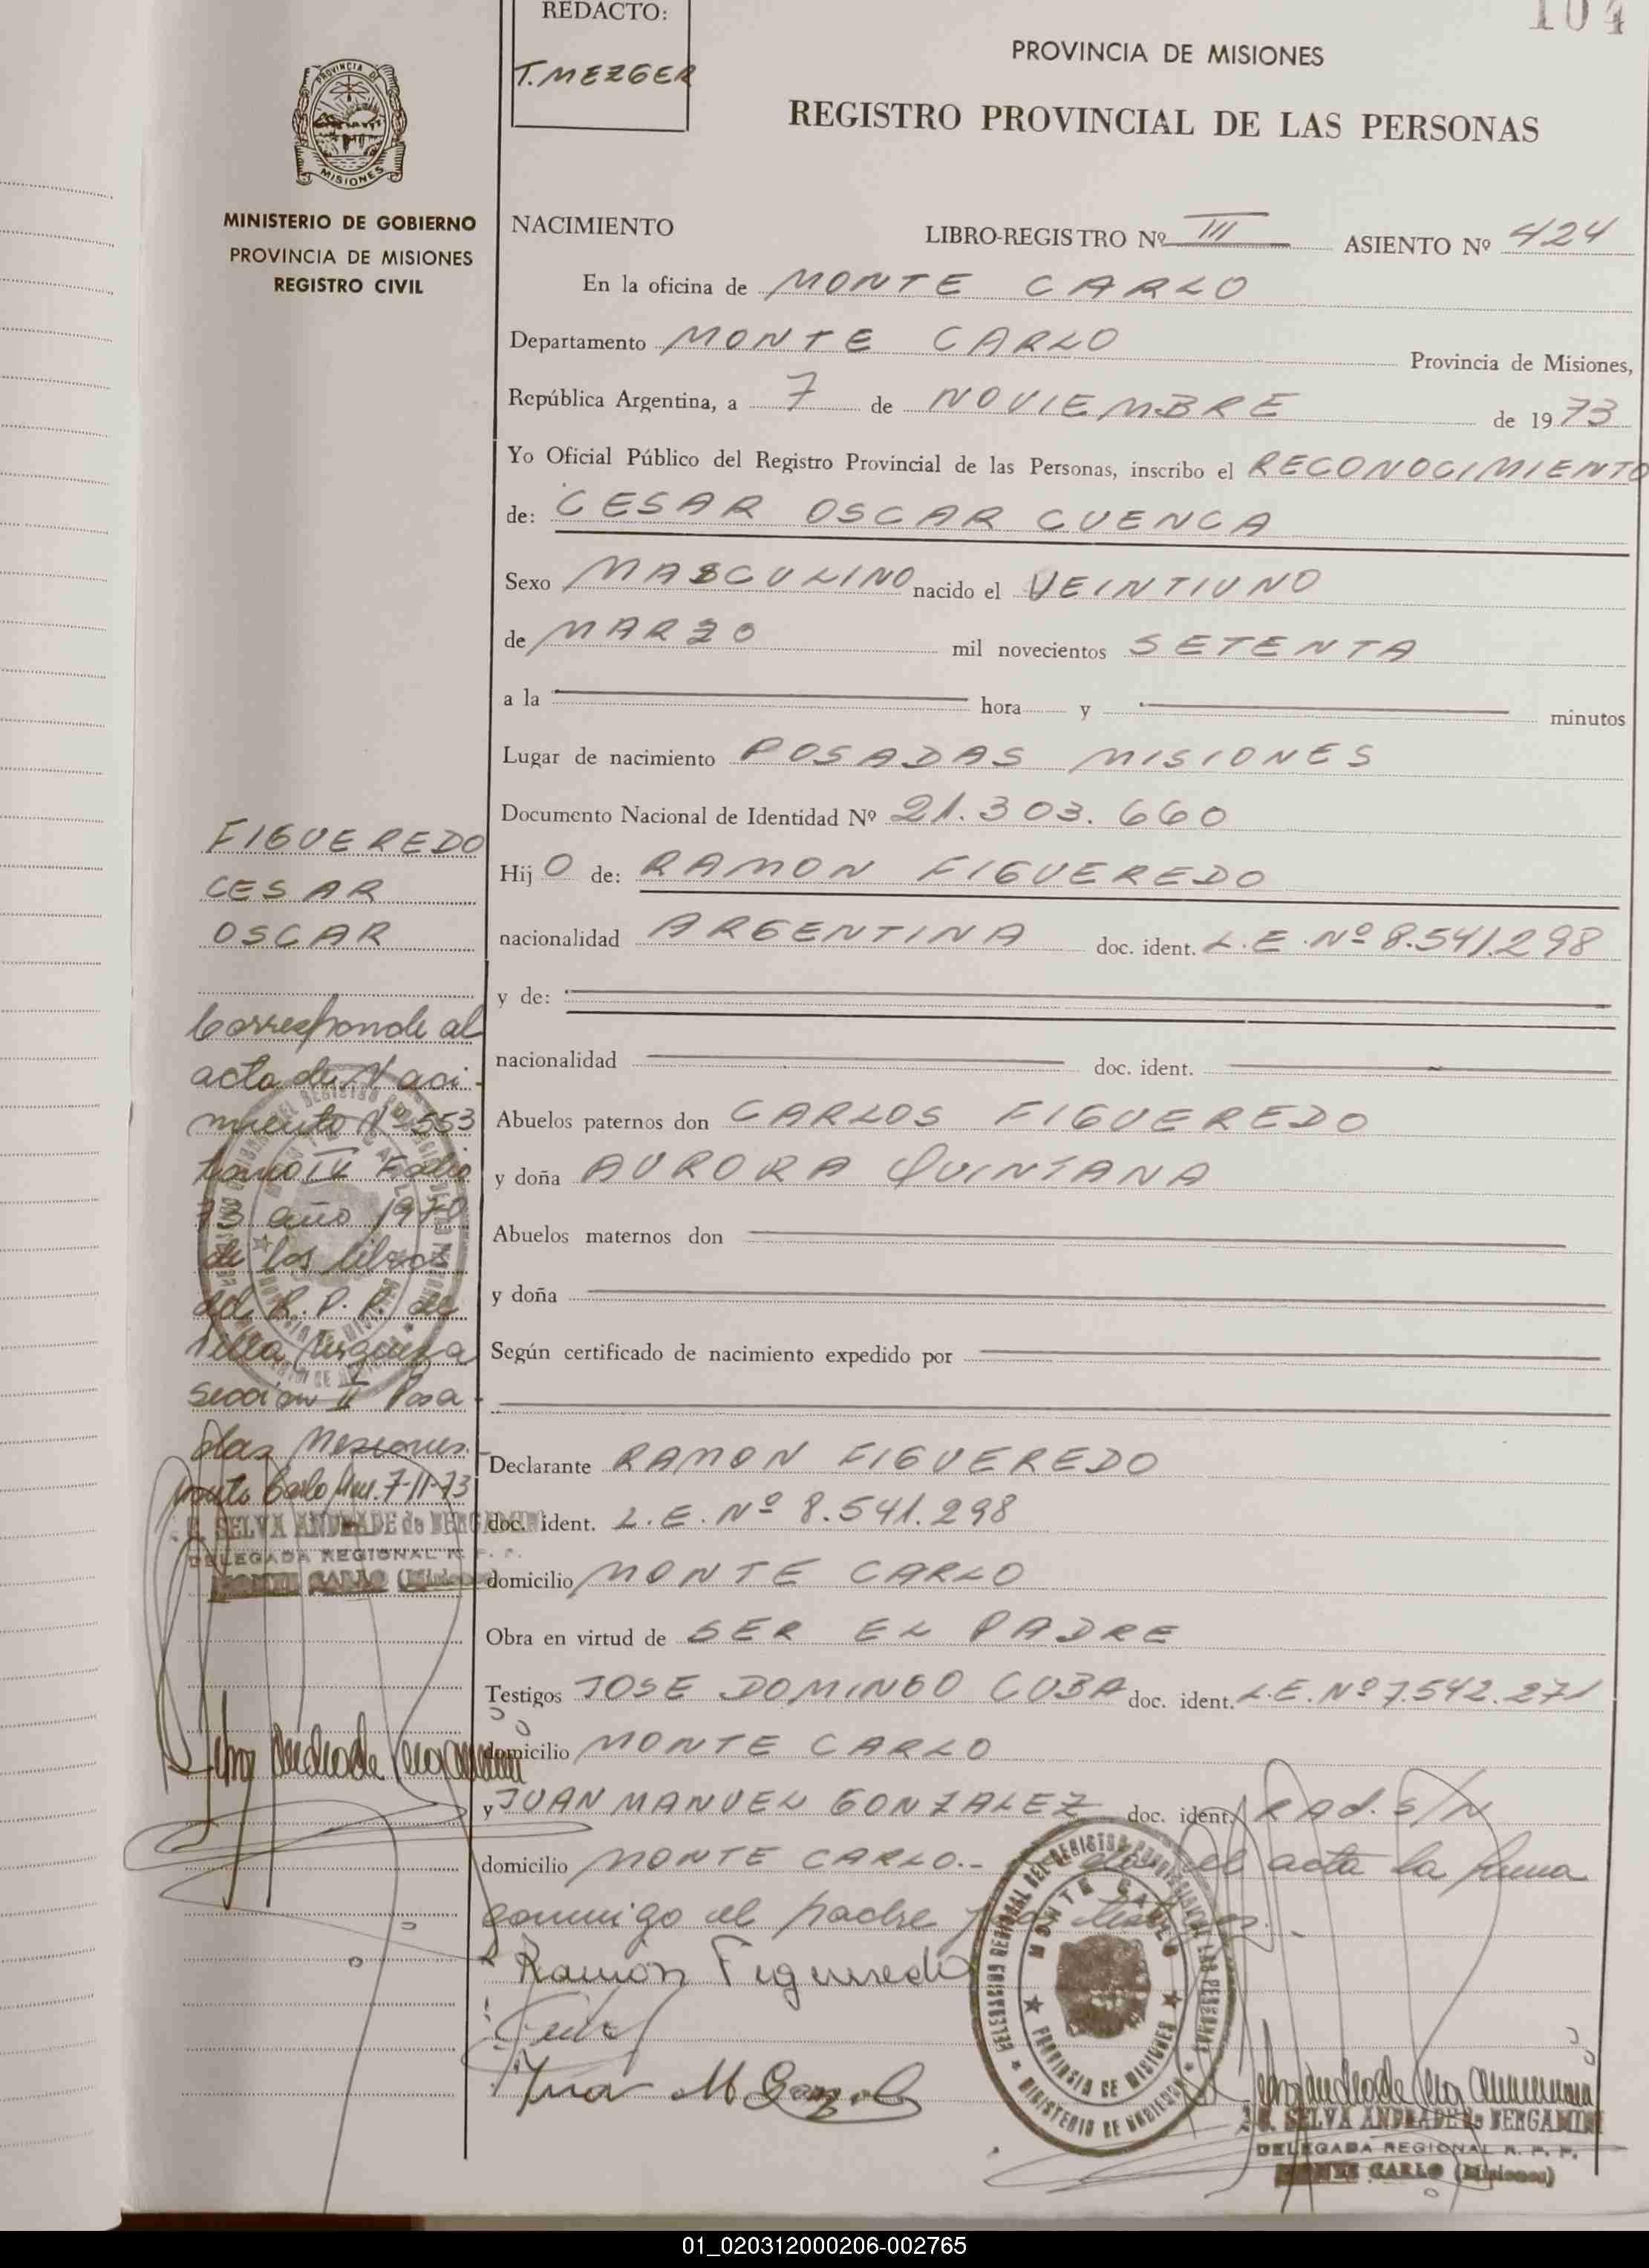 REDACTO:
T. MEZGER
104
PROVINCIA DE MISIONES
REGISTRO PROVINCIAL DE LAS PERSONAS
PROVINCIA DE
MISIONES
MINISTERIO DE GOBIERNO
PROVINCIA DE MISIONES
REGISTRO CIVIL
NACIMIENTO LIBRO-REGISTRO Nº III ASIENTO Nº 424
En la oficina de MONTE CARLO
Departamento MONTE CARLO Provincia de Misiones,
República Argentina, a 7 de NOVIEMBRE de 1973
Yo Oficial Público del Registro Provincial de las Personas, inscribo el RECONOCIMIENTO
de: CESAR OSCAR CUENCA
Sexo MASCULINO nacido el VEINTIUNO
de MARZO mil novecientos SETENTA
a la hora y minutos
Lugar de nacimiento POSADAS MISIONES
Documento Nacional de Identidad Nº 21.303.660
Hij O de: RAMON FIGUEREDO
nacionalidad ARGENTINA doc. ident. L.E. Nº 8.541.298
y de:
nacionalidad doc. ident.
Abuelos paternos don CARLOS FIGUEREDO
y doña AURORA QUINTANA
Abuelos maternos don
y doña
Según certificado de nacimiento expedido por
Declarante RAMON FIGUEREDO
doc. ident. L.E. Nº 8.541.298
domicilio MONTE CARLO
Obra en virtud de SER EL PADRE
Testigos JOSE DOMINGO CUBA doc. ident. L.E. Nº 7.542.271
domicilio MONTE CARLO
y JUAN MANUEL GONZALEZ doc. ident. RAD. S/N
domicilio MONTE CARLO.- el acta la firma
conmigo el padre y
Ramón Figueredo
Juan M Gonzalez
FIGUEREDO
CESAR
OSCAR
Corresponde al
acta de Naci-
miento Nº 553
tomo IV Folio
73 año 1970
de los libros
del R.P.P. de
Villa Urquiza
Sección II Posa-
das Misiones.-
Monte Carlo Mnes. 7-11-73
SELVA ANDRADE de BERGAMINI
DELEGADA REGIONAL R. P. P.
MONTE CARLO (Misiones)
DELEGACION REGIONAL DEL REGISTRO PROVINCIAL DE LAS PERSONAS
MONTE CARLO
PROVINCIA DE MISIONES
MINISTERIO DE GOBIERNO
SELVA ANDRADE de BERGAMINI
DELEGADA REGIONAL R. P. P.
MONTE CARLO (Misiones)
01_020312000206-002765